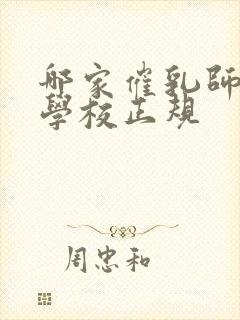 哪家催乳師
學校正規
周忠和